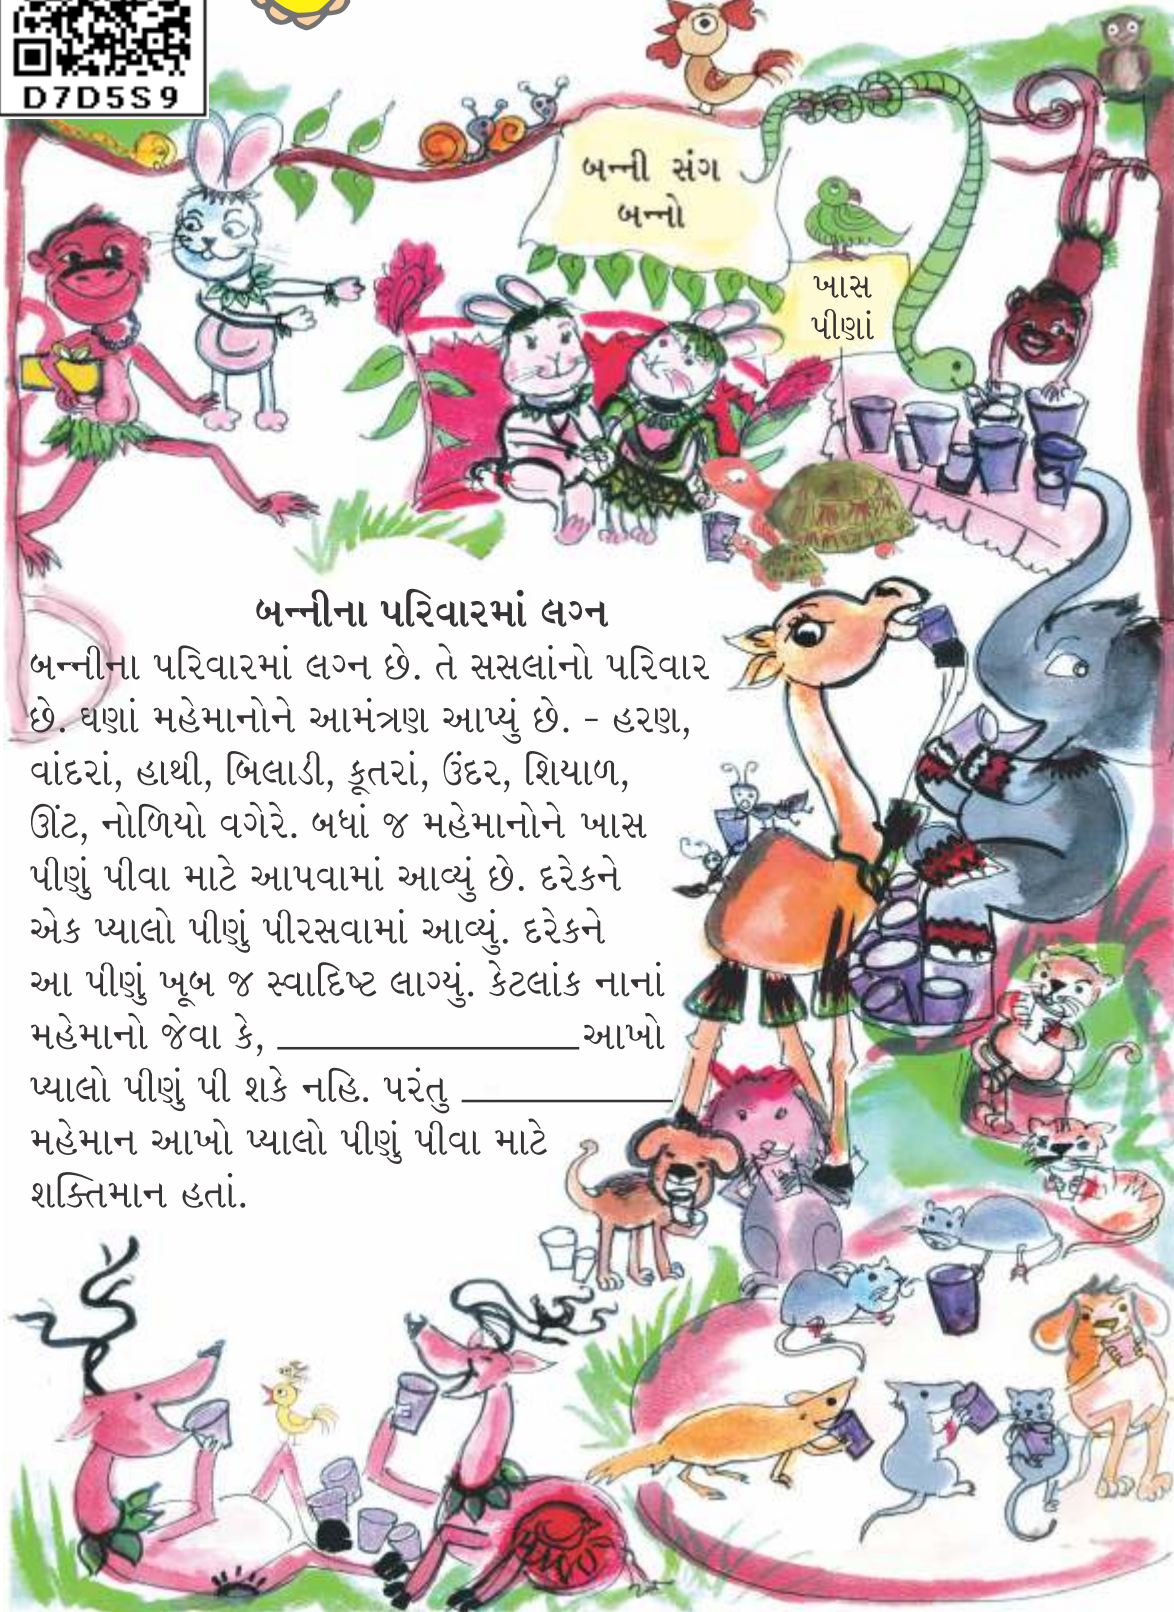 D7D5S9
બન્ની સંગ
બન્નો
ખાસ
પીણાં
બન્નીના પરિવારમાં લગ્ન
બન્નીના પરિવારમાં લગ્ન છે. તે સસલાંનો પરિવાર
છે. ઘણાં મહેમાનોને આમંત્રણ આપ્યું છે. - હરણ,
વાંદરાં, હાથી, બિલાડી, કૂતરાં, ઉંદર, શિયાળ,
ઊંટ, નોળિયો વગેરે. બધાં જ મહેમાનોને ખાસ
પીણું પીવા માટે આપવામાં આવ્યું છે. દરેકને
એક પ્યાલો પીણું પીરસવામાં આવ્યું. દરેકને
આ પીણું ખૂબ જ સ્વાદિષ્ટ લાગ્યું. કેટલાંક નાનાં
મહેમાનો જેવા કે, ____________________આખો
પ્યાલો પીણું પી શકે નહિ. પરંતુ ______________
મહેમાન આખો પ્યાલો પીણું પીવા માટે
શક્તિમાન હતાં.